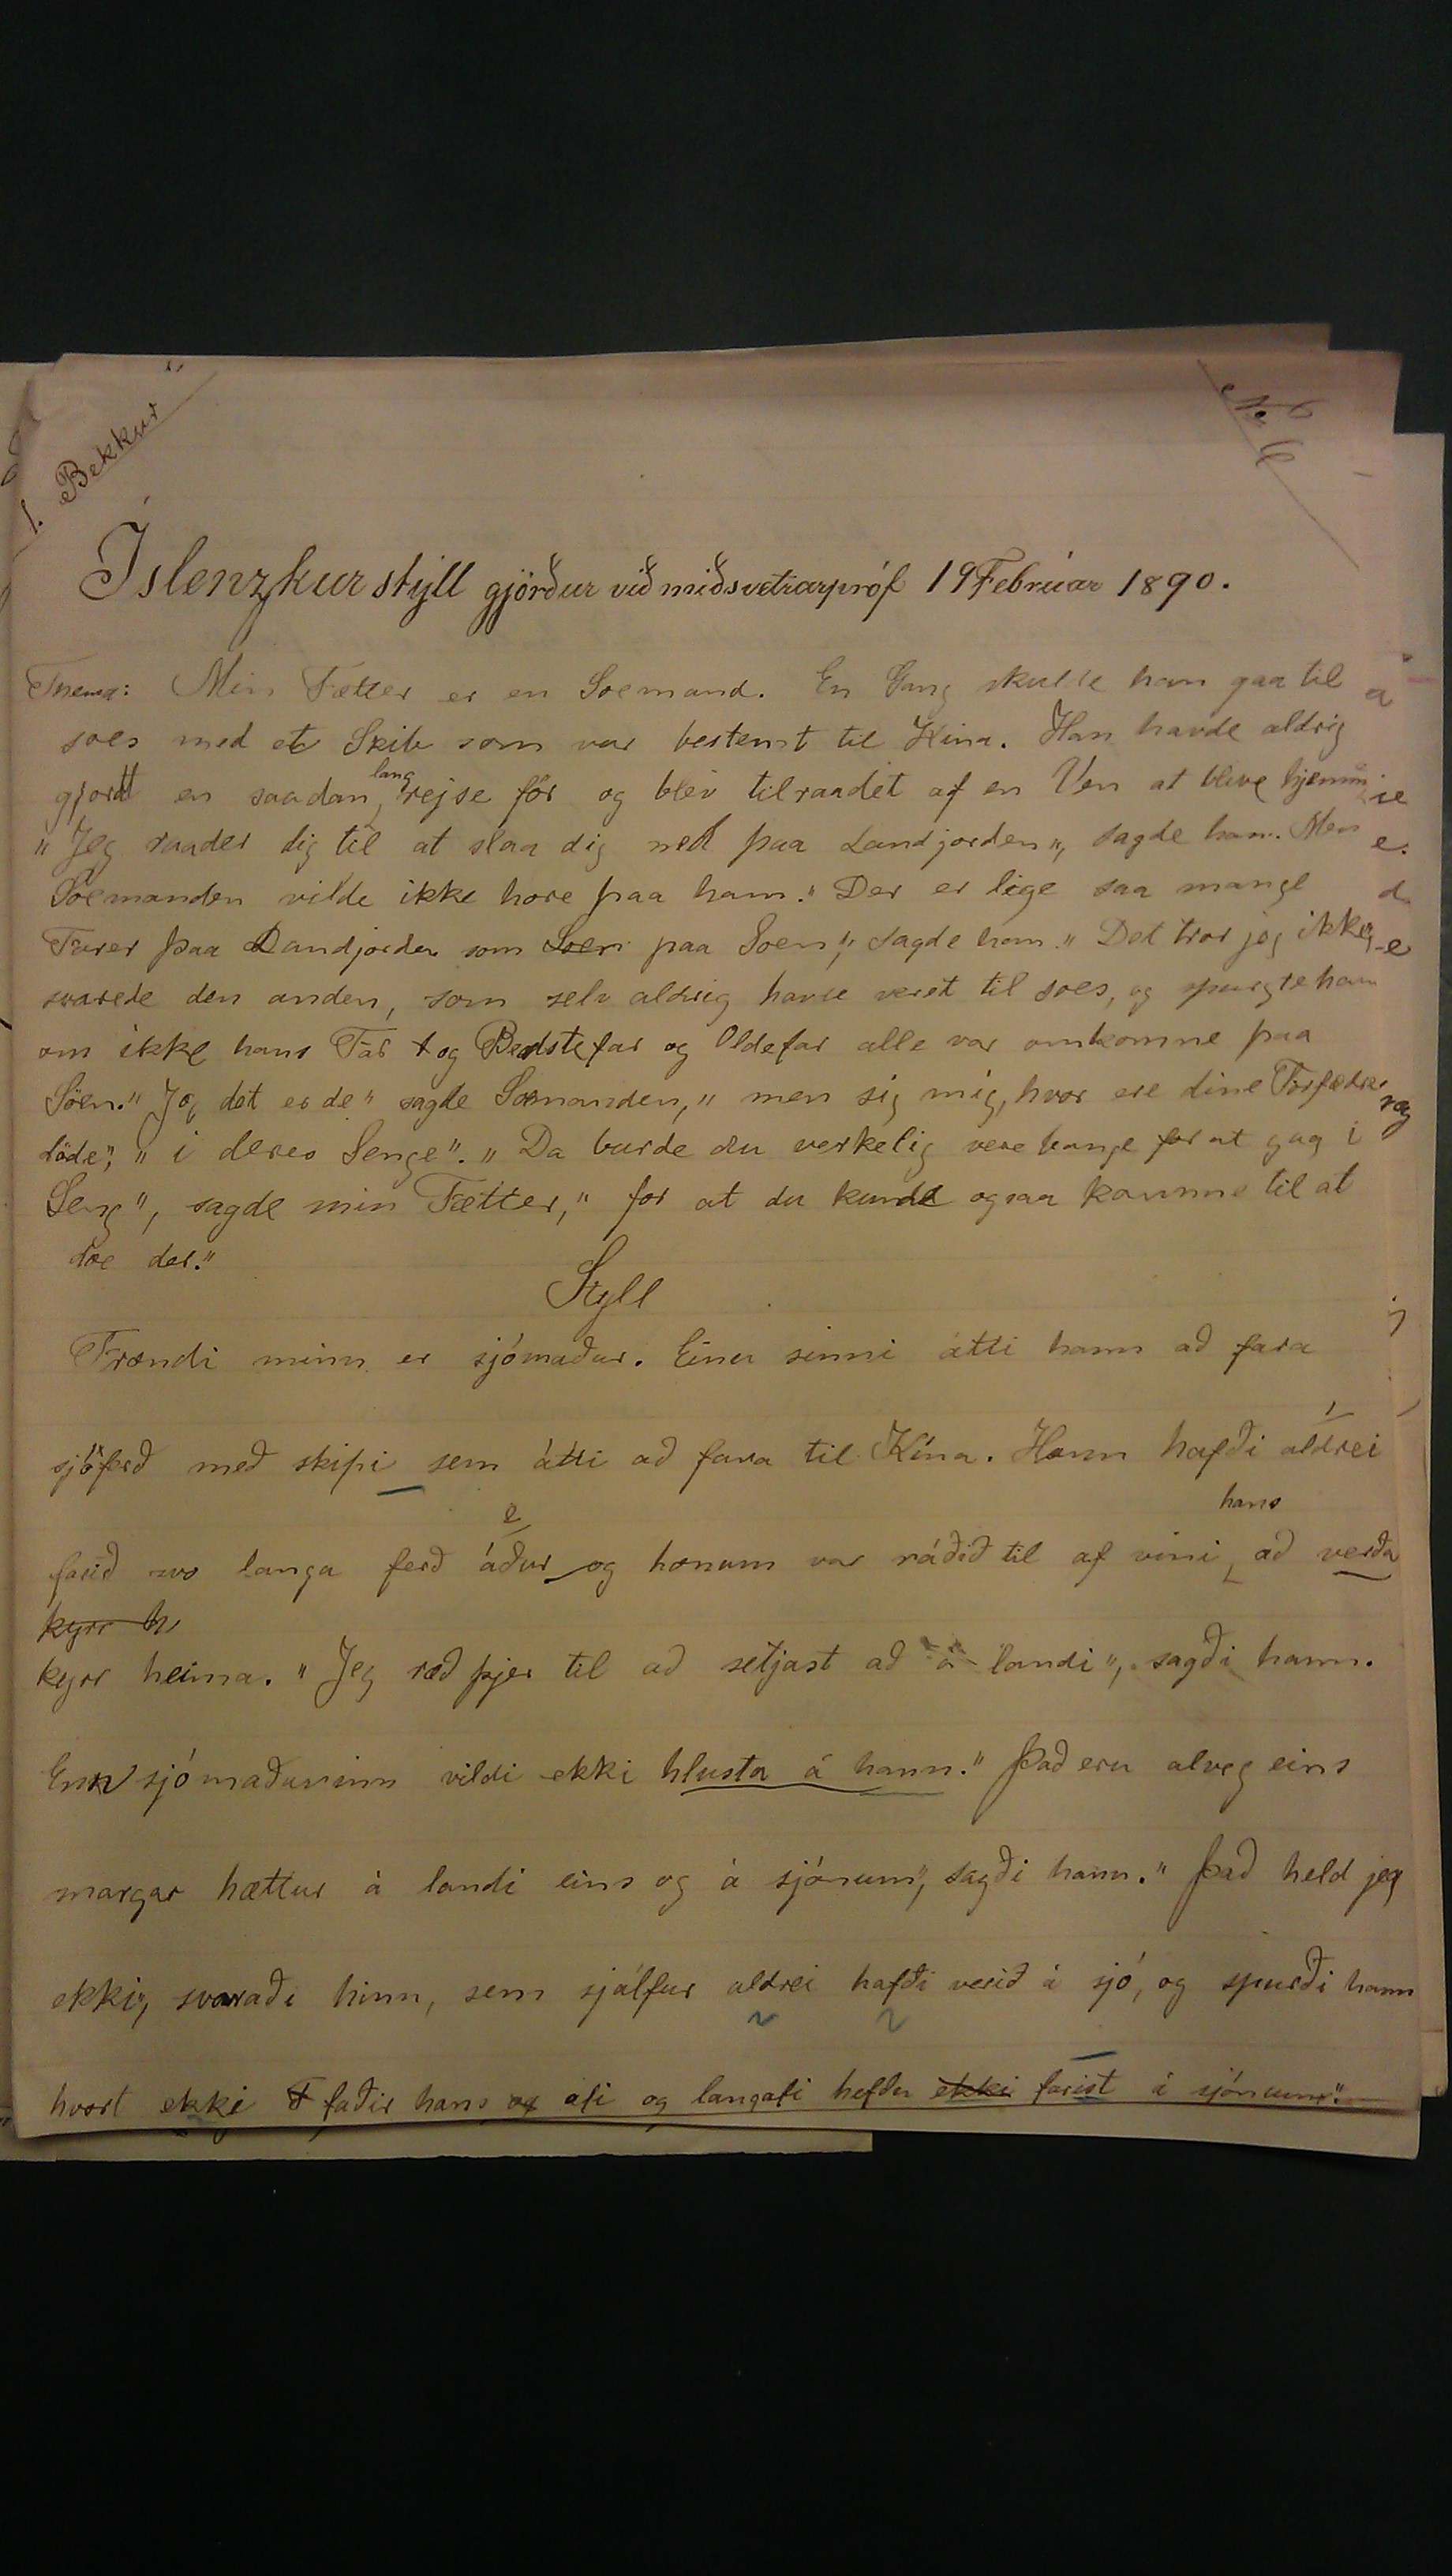 1. Bekkur
No 6
Íslenzkur stýll gjörður við miðsvetrarpróf 19 Februar 1890.
Thema: Min Fætter er en Soemand. En Gang skulle han gaa til
soes med et Skib som var bestemt til Kina. Han havde aldrig
gjordt en saadan lang rejse för og blev tilraadet af en Ven at blive hjemm
„Jeg raader dig til at slaa dig ned paa Landjorden„, sagde han. Men
Soemanden vilde ikke hore paa ham." Der er lige saa mange
Farer paa Landjorden som Soen paa Soen„, sagde han." Det tror jeg ikke„,
svarede den anden, som selv aldrig havde veret til soes, og spurgte ham
om ikke hans Far og Bedstefar og Oldefar alle var omkomne paa
Söen." Jo, det er de" sagde Somanden,„ men sig mig, hvor ere dine Forfædre
döde„, „i deres Senge". „Da burde du verkelig vere bange for at gaa i
Seng", sagde min Fætter,„ for at du kunde ogsaa komme til at
doe der."
Styll
Frændi minn er sjómaður. Einu sinni átti hann að fara
sjóferð með skipi sem átti að fara til Kína. Hann hafði aldrei
farið svo langa ferð áður og honum var ráðið til af vini hans að verða
kyrr h
kyrr heima. „Jeg ræð þjer til að setjast að á landi", sagði hann.
Enn sjómaðurinn vildi ekki hlusta á hann." Það eru alveg eins
margar hættur á landi eins og á sjónum", sagði hann." Það held jeg
ekki", svaraði hinn, sem sjálfur aldrei hafði verið á sjó, og spurði hann
hvort ekki faðir hans og afi og langafi hefðu ekki farist á sjónum."